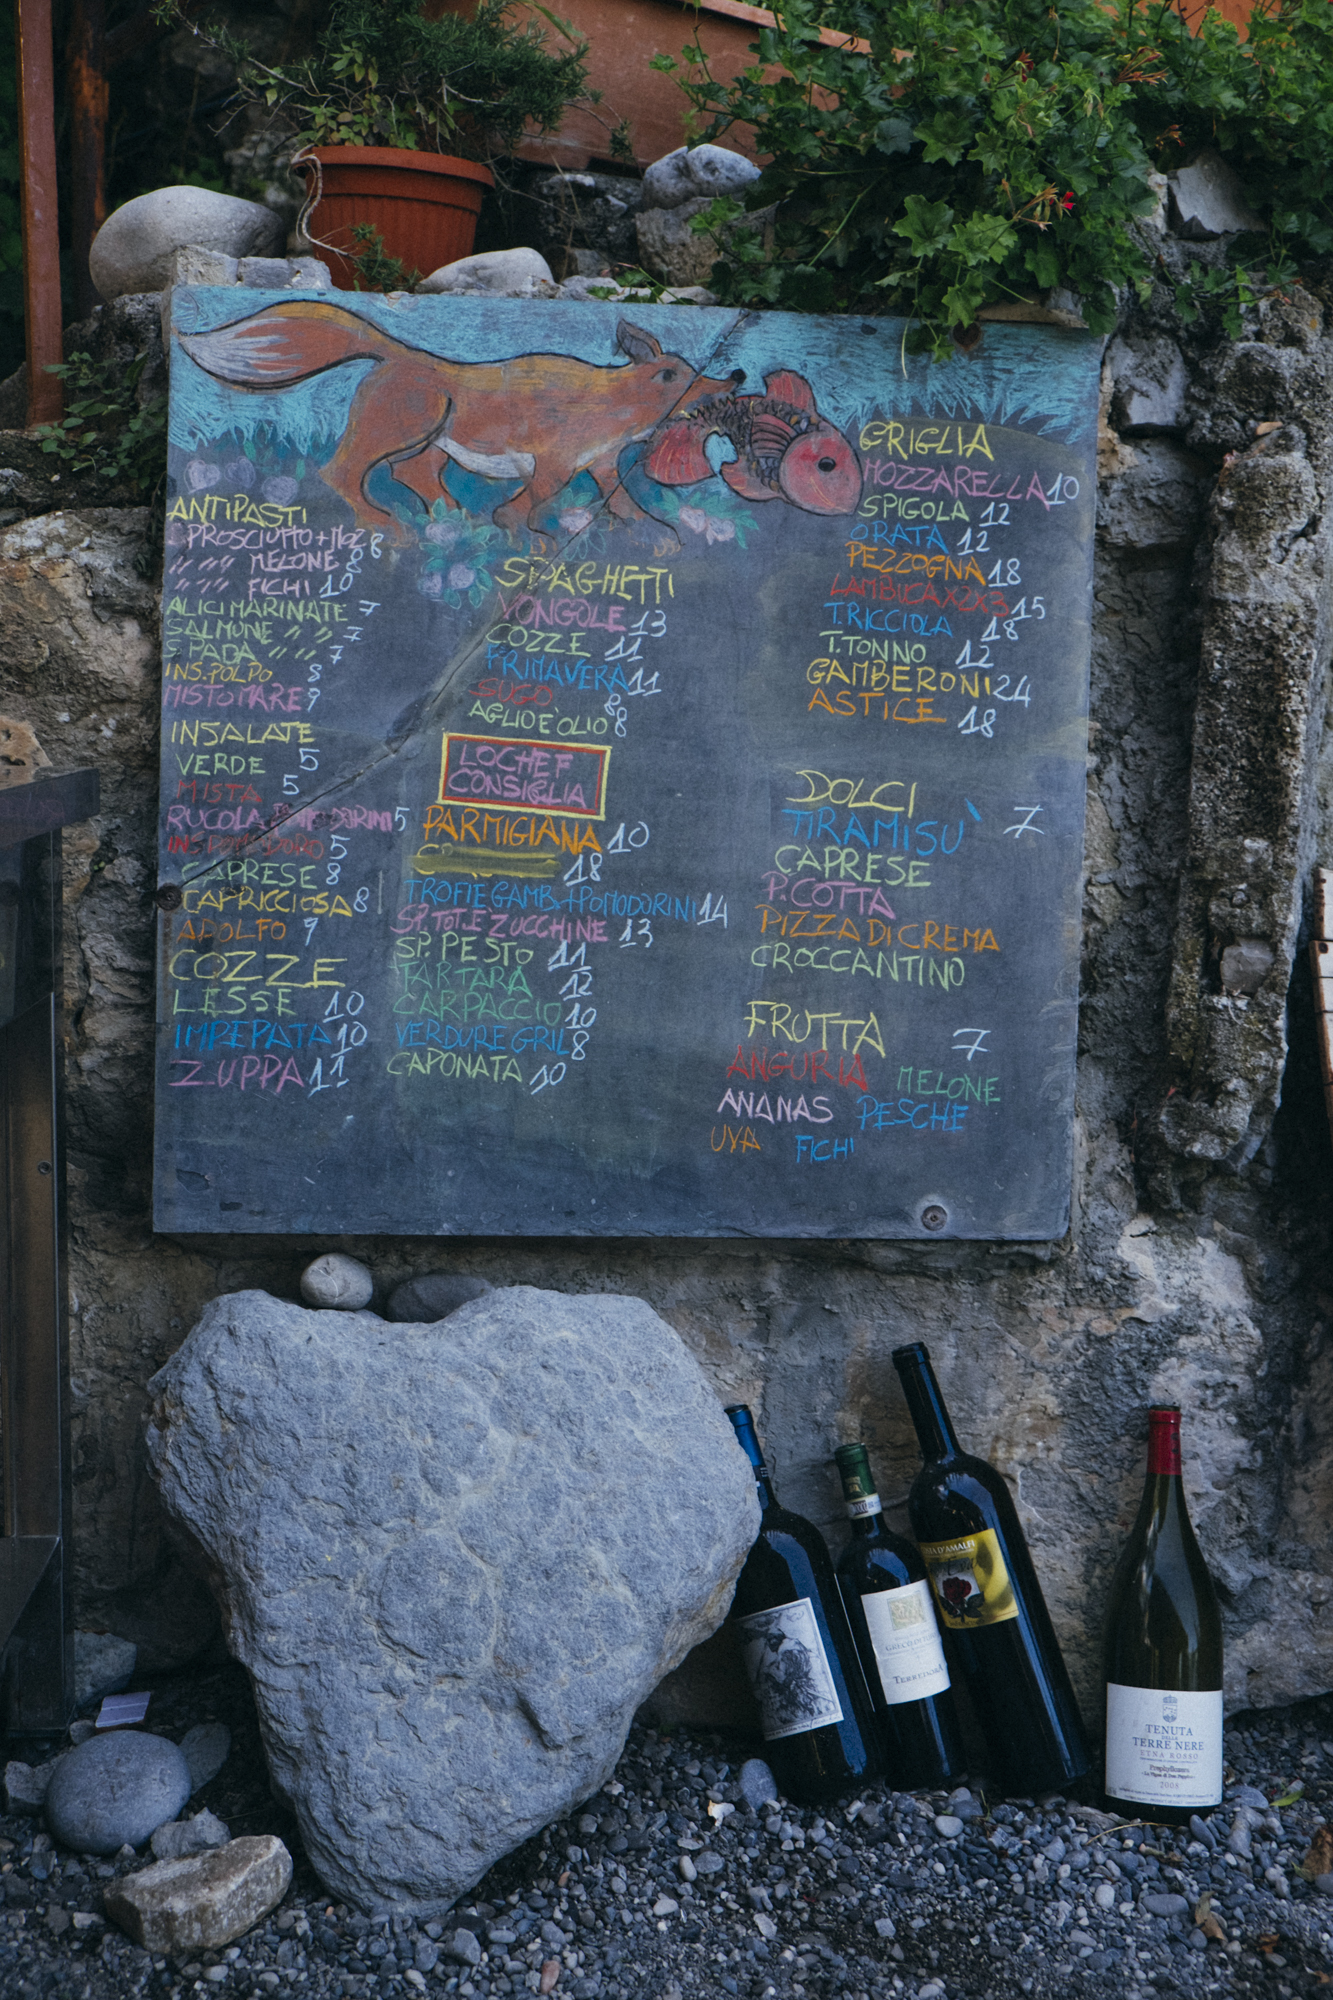 ANTIPASTI
PROSCIUTTO+MOZ 8
" " " MELONE 8
" " " FICHI 10
ALICI MARINATE 7
SALMONE " " 7
SPADA " " 7
INS.POLPO 8
MISTO MARE 9
INSALATE
VERDE 5
MISTA 5
RUCOLA POMODORINI 5
INS POMODORO 5
CAPRESE 8
CAPRICCIOSA 8
ADOLFO 9
COZZE
LESSE 10
IMPEPATA 10
ZUPPA 11
SPAGHETTI
VONGOLE 13
COZZE 11
PRIMAVERA 11
SUGO 8
AGLIO E' OLIO 8
LO CHEF
CONSIGLIA
PARMIGIANA 10
18
TROFIE GAMB.+POMODORINI 14
SP.TOT.E ZUCCHINE 13
SP. PESTO 11
TARTARA 12
CARPACCIO 10
VERDURE GRIL 8
CAPONATA 10
GRIGLIA
MOZZARELLA 10
SPIGOLA 12
ORATA 12
PEZZOGNA 18
LAMBUCA X2X3 15
T.RICCIOLA 18
T.TONNO 12
GAMBERONI 24
ASTICE 18
DOLCI
TIRAMISU' 7
CAPRESE
P.COTTA
PIZZA DI CREMA
CROCCANTINO
FRUTTA 7
ANGURIA MELONE
ANANAS PESCHE
UVA FICHI
COSTA D'AMALFI
GRECO DI
TERREDORA
TENUTA
DELLE
TERRE NERE
ETNA ROSSO
Prephylloxera
2008